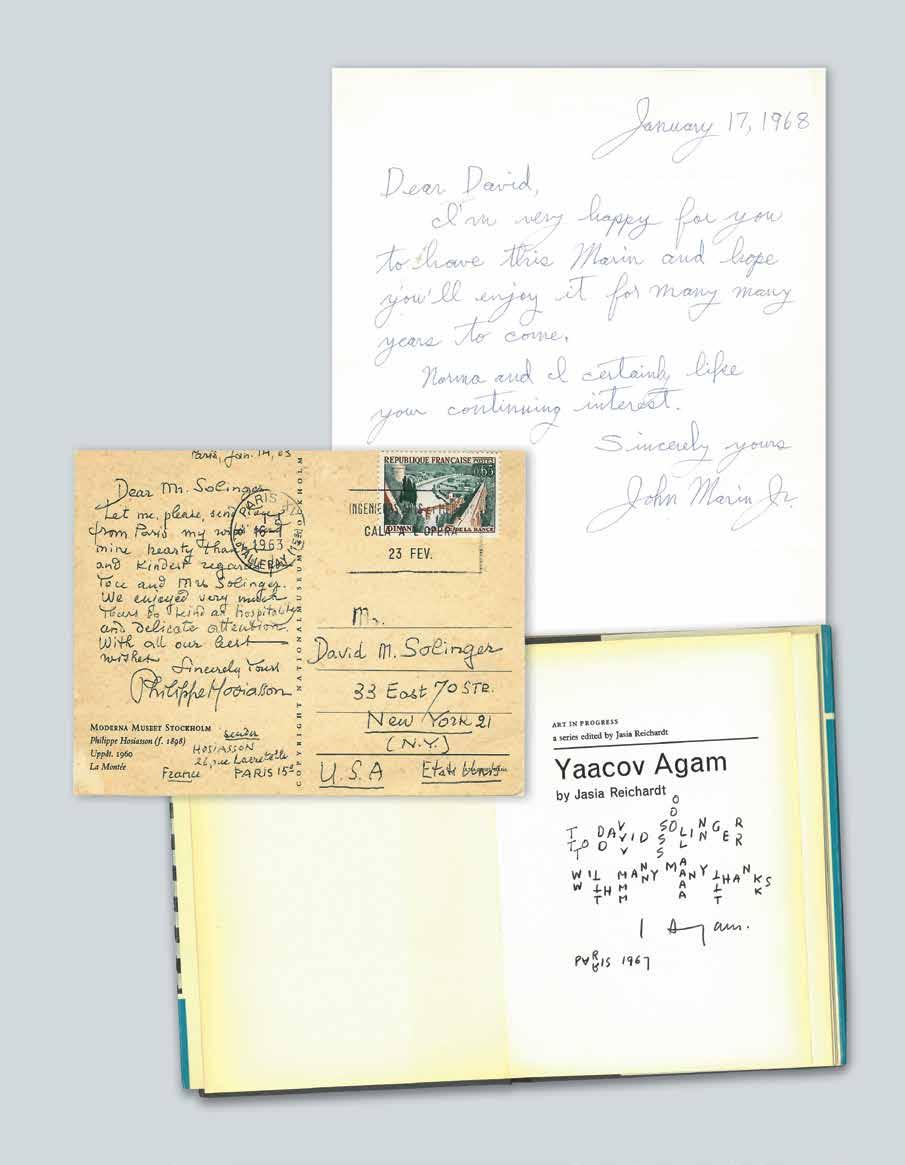 January 17, 1968
Dear David,
I'm very happy for you
to have this Marin and hope
you'll enjoy it for many many
years to come.
Norma and I certainly like
your continuing interest.
Sincerely yours
John Marin Jr.
Paris, Jan. 14, 63
Dear Mr. Solinger
Let me, please, send
from Paris my
mine hearty
and kindest
You and Mrs Solinger.
We enjoyed very much
Yours so kind hospitality
and delicate attention.
With all our best
wishes
Sincerely Yours
Philippe Hosiasson
MODERNA MUSEET STOCKHOLM
Philippe Hosiasson (f. 1898)
Uppåt. 1960
La Montée
sender
HOSIASSON
26, rue Lacretelle
PARIS 15e
France
COPYRIGHT NATIONALMUSEUM STOCKHOLM
PARIS
1963
REPUBLIQUE FRANÇAISE POSTES
0,65
DINAN
DE LA RANCE
GALA A L'OPERA
23 FEV.
Mr.
David M. Solinger
33 East 70 STR.
New York 21
(N.Y.)
U.S.A Etats Unis
ART IN PROGRESS
a series edited by Jasia Reichardt
Yaacov Agam
by Jasia Reichardt
TO DAVID SOLINGER
WITH MANY MANY THANKS
Agam.
PARIS 1967